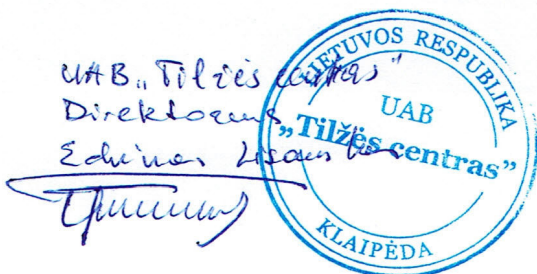 UAB „Tilžės centras"
Direktorius
LIETUVOS RESPUBLIKA
UAB
„Tilžės centras”
KLAIPĖDA